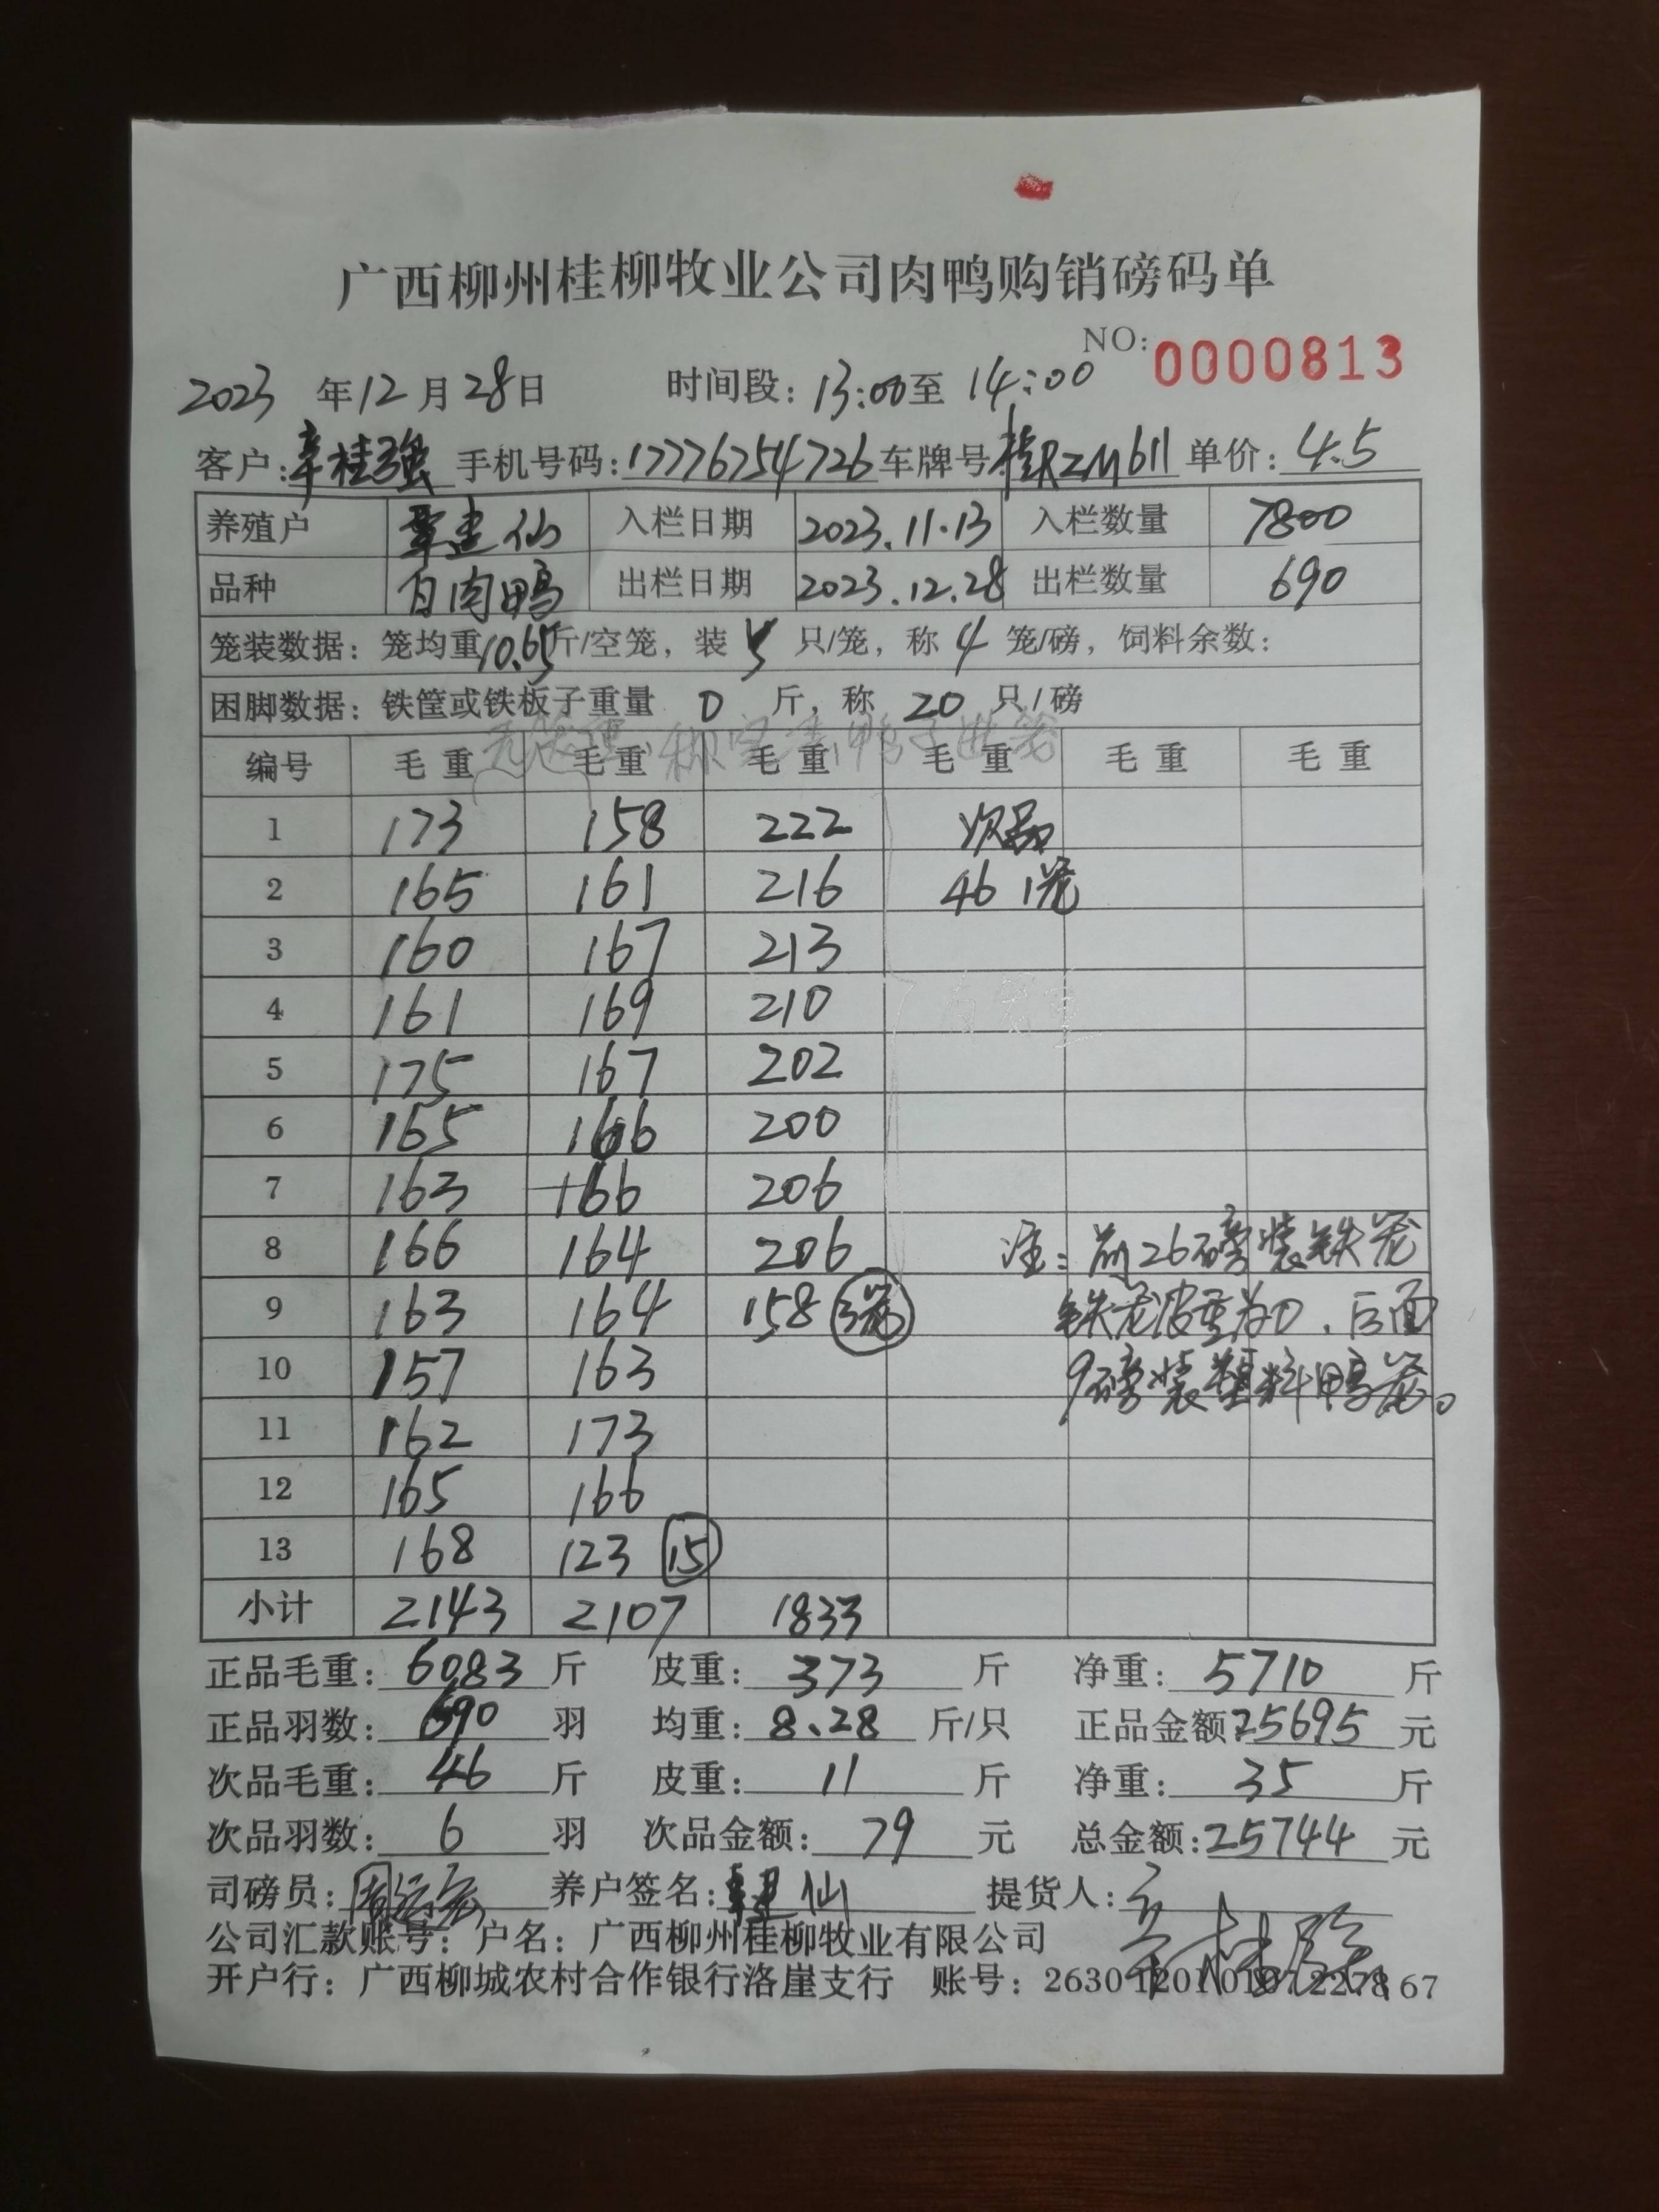 广西柳州桂柳牧业公司肉鸭购销磅码单
NO: 0000813
2023 年 12 月 28 日 时间段: 13:00 至 14:00
客户: 辛桂强 手机号码: 17776754726 车牌号 桂RZM611 单价: 4.5
养殖户 覃建仙 入栏日期 2023.11.13 入栏数量 7800
品种 白肉鸭 出栏日期 2023.12.28 出栏数量 690
笼装数据: 笼均重 10.65 斤/空笼, 装 5 只/笼, 称 4 笼/磅, 饲料余数:
困脚数据: 铁筐或铁板子重量 0 斤, 称 20 只/磅
编号 毛重 毛重 毛重 毛重 毛重 毛重
1 173 158 222 次品
2 165 161 216 46 1笼
3 160 167 213
4 161 169 210
5 175 167 202
6 165 166 200
7 163 166 206
8 166 164 206 注: 前26磅装铁笼
9 163 164 158 3笼 铁笼皮重为0, 后面
10 157 163 9磅装塑料鸭笼。
11 162 173
12 165 166
13 168 123 15
小计 2143 2107 1833
正品毛重: 6083 斤 皮重: 373 斤 净重: 5710 斤
正品羽数: 690 羽 均重: 8.28 斤/只 正品金额 25695 元
次品毛重: 46 斤 皮重: 11 斤 净重: 35 斤
次品羽数: 6 羽 次品金额: 79 元 总金额: 25744 元
司磅员: 养户签名: 覃建仙 提货人: 辛桂强
公司汇款账号: 户名: 广西柳州桂柳牧业有限公司
开户行: 广西柳城农村合作银行洛崖支行 账号: